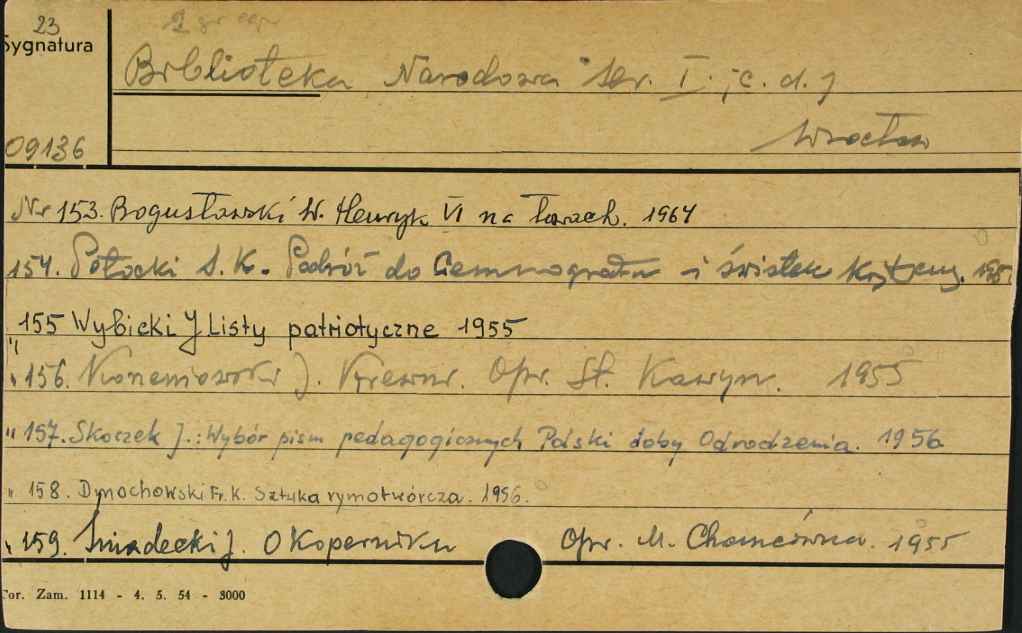 23
Sygnatura
09136
Biblioteka Narodowa Ser. I. (c. d.)
Wrocław
Nr 153. Bogusławski W. Henryk VI na łowach. 1964
154. Potocki S. K. Podróż do Ciemnogrodu i świstek
" 155 Wybicki J Listy patriotyczne 1955
" 156. Korzeniowski J. Krewni. Opr. St. Kawyn. 1955
" 157. Skoczek J.: Wybór pism pedagogicznych Polski doby Odrodzenia. 1956
" 158. Dmochowski Fr. K. Sztuka rymotwórcza. 1956.
" 159. Śniadecki J. O Koperniku Opr. M. Chamcówna. 1955
Cor. Zam. 1114 - 4. 5. 54 - 3000